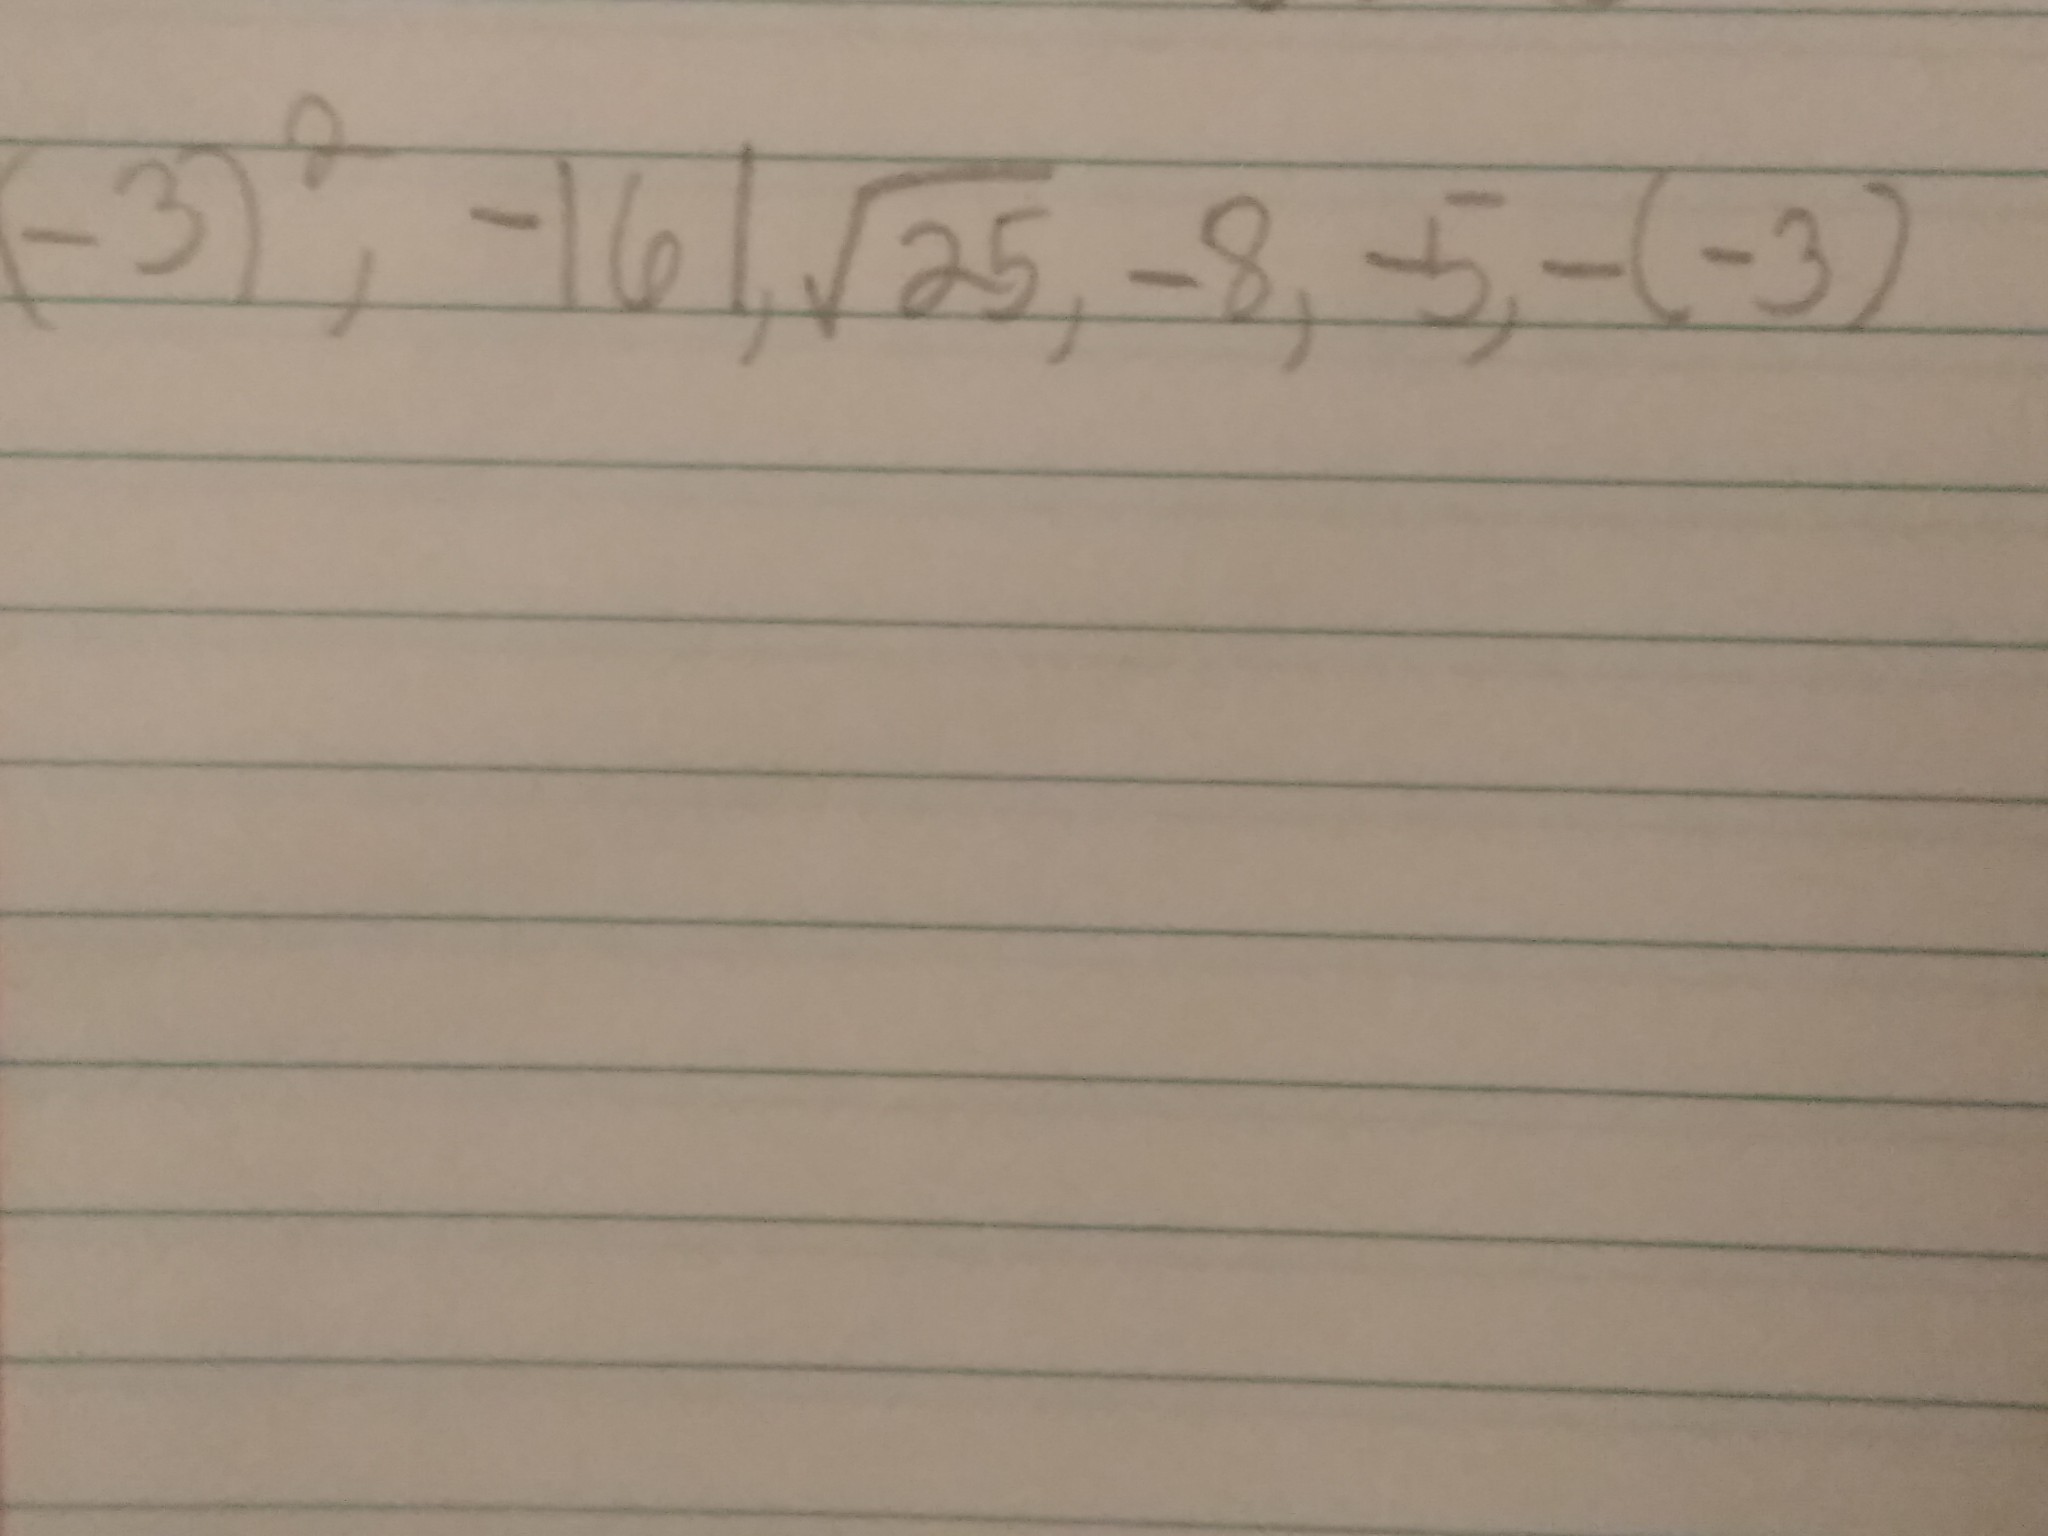 (-3)², -|6|, √25, -8, -5, -(-3)